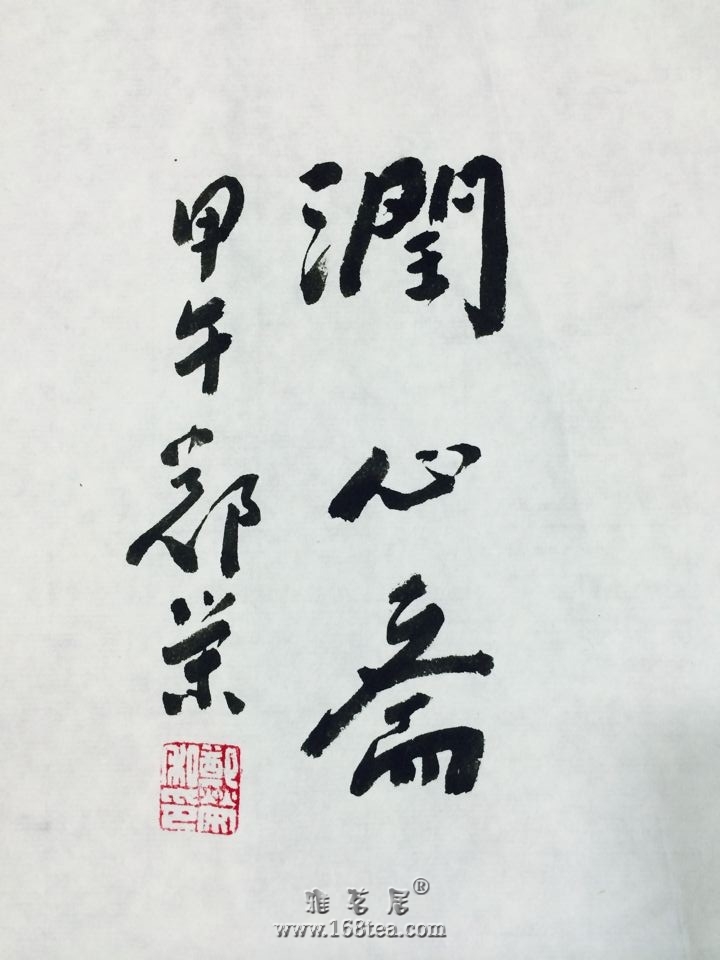 潤心斋
甲午鄭荣
雅茗居®
www.168tea.com